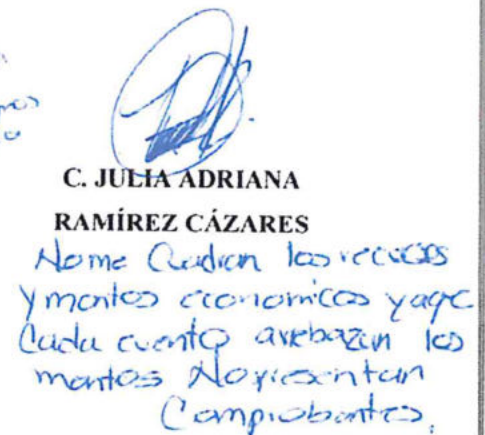 C. JULIA ADRIANA
RAMÍREZ CÁZARES
Nome Cuadran los recursos
y montos economicos yaqe
Cada evento arrebazan los
montos No presentan
Comprobantes.